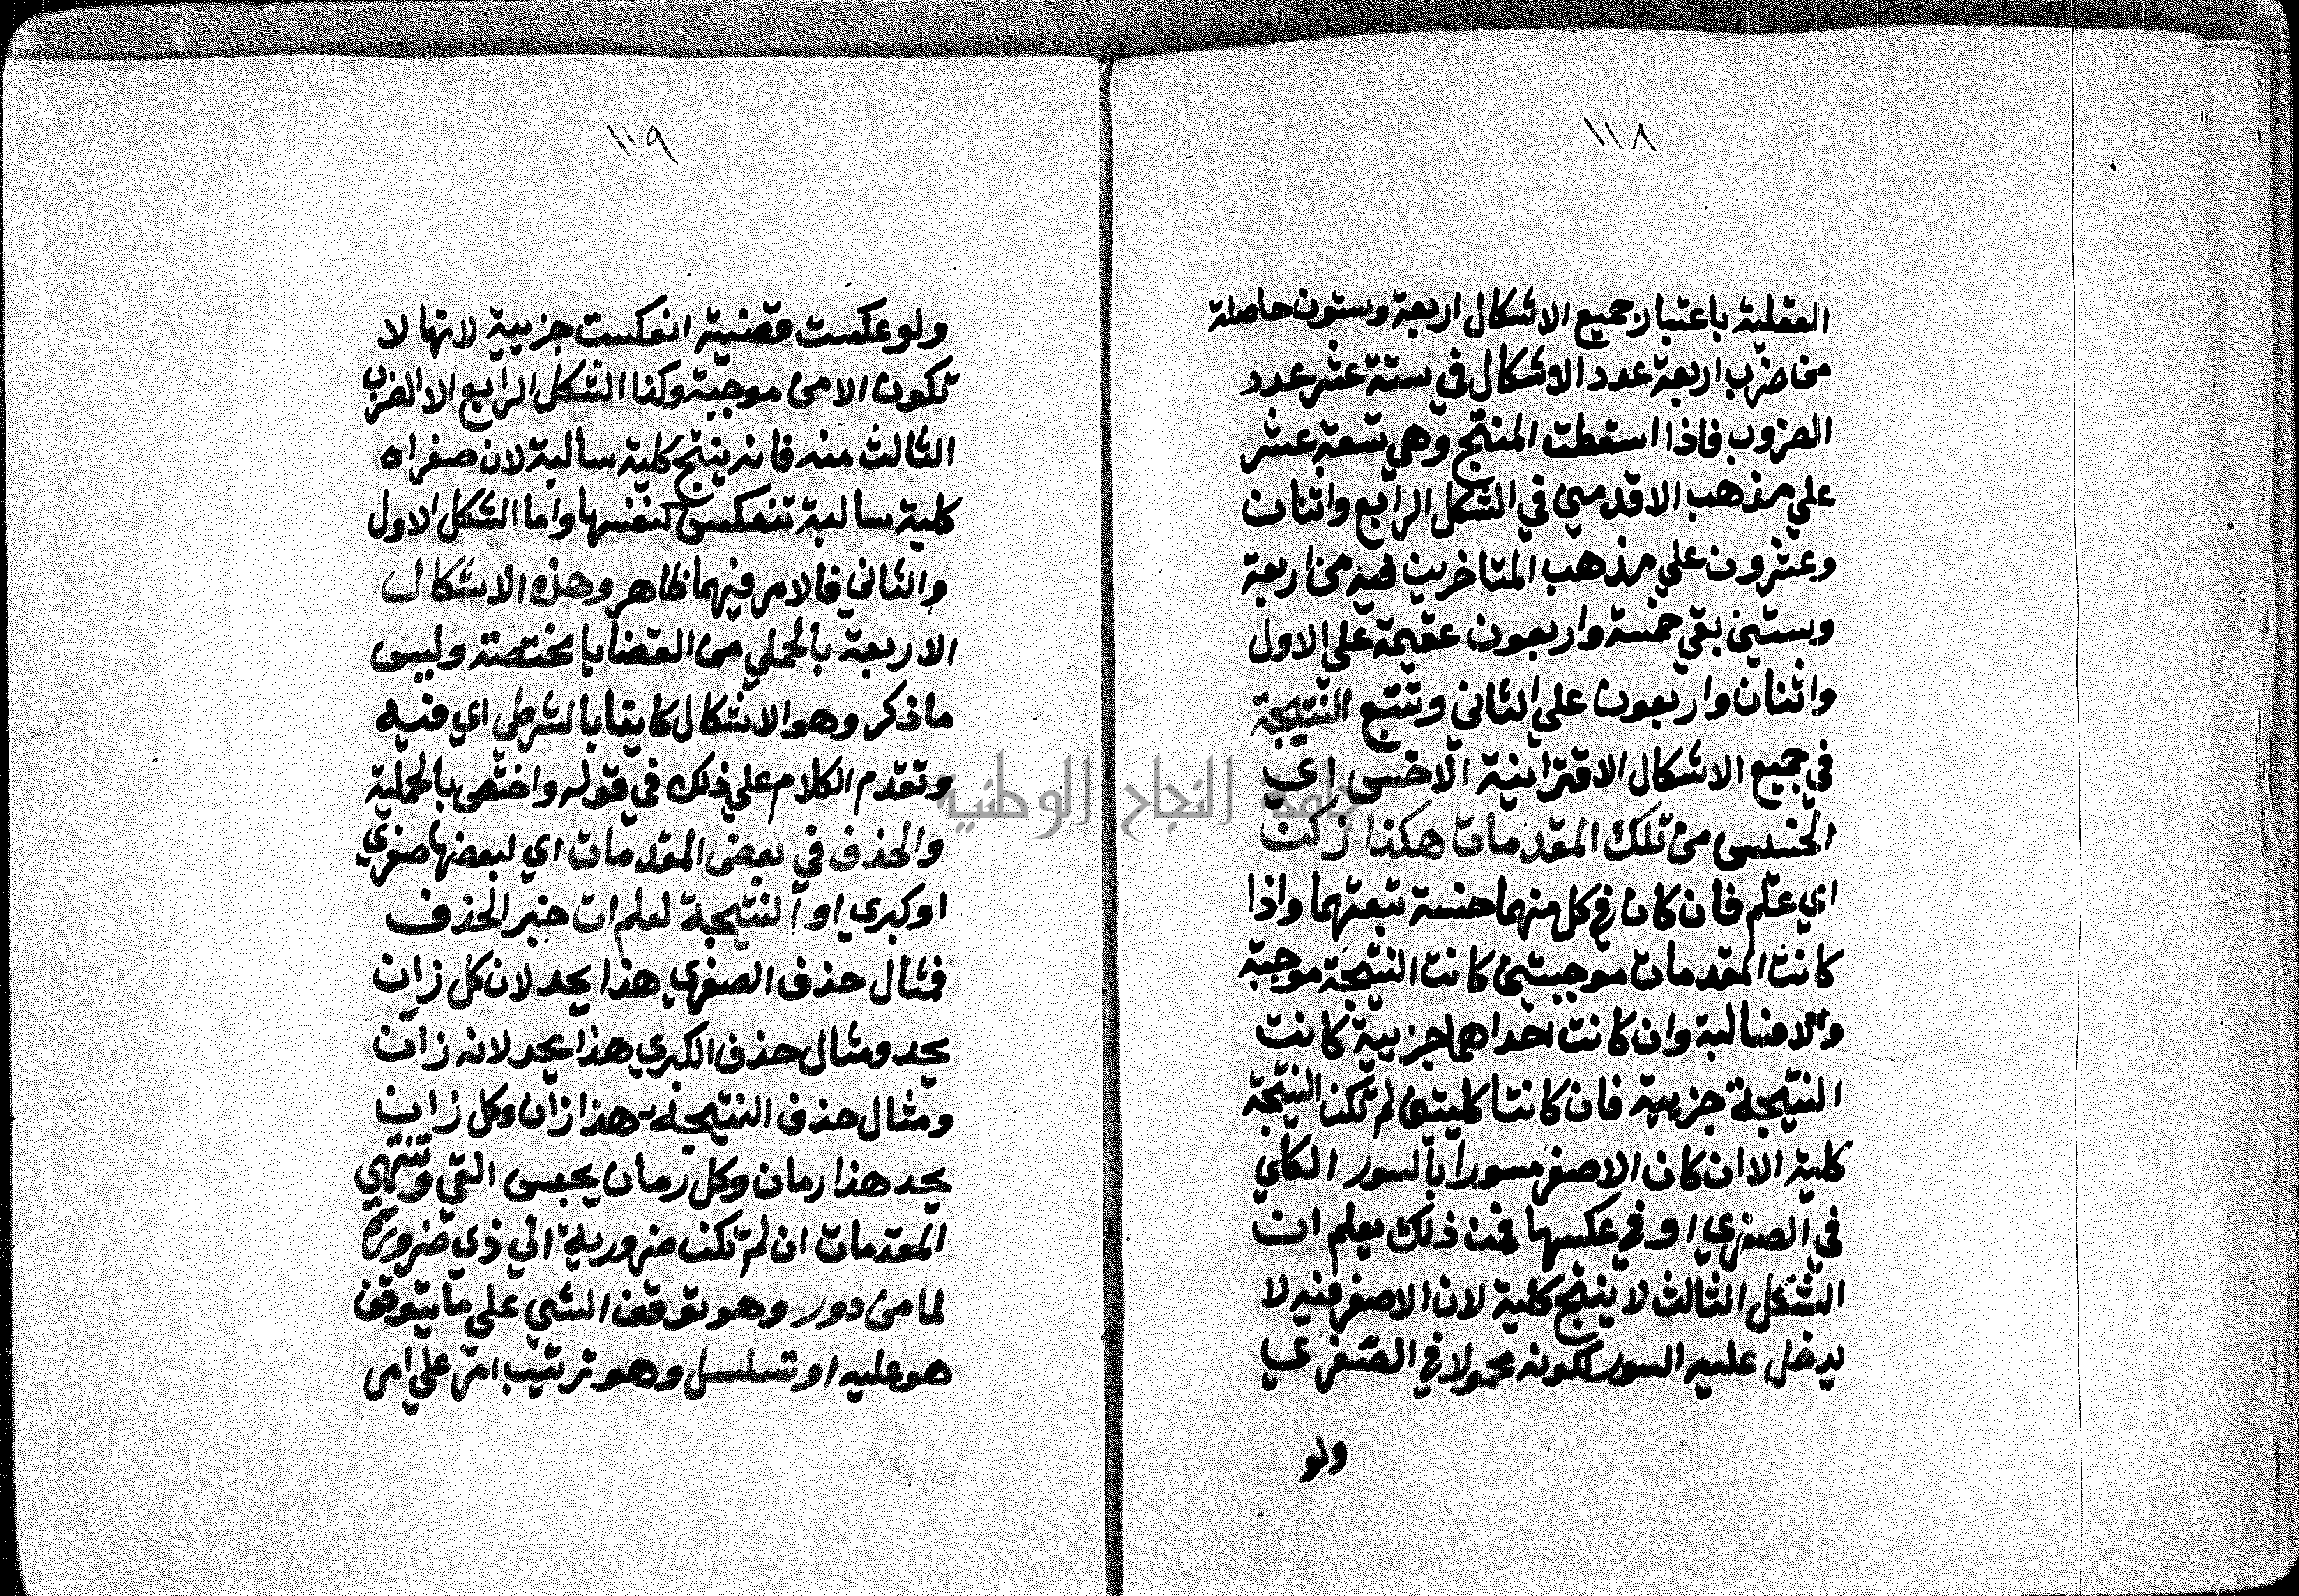 ١١٨
العقلية باعتبار جميع الاشكال اربعة وستون حاصلة
من ضرب اربعة عدد الاشكال في ستة عشر عدد
الضروب فاذا اسقطت المنتج وهي تسعة عشر
علي مذهب الاقدمين في الشكل الرابع واثنان
وعشرون علي مذهب المتاخرين فيه من اربعة
وستين بقي خمسة واربعون عقيمة علي الاول
واثنان واربعون علي الثاني وتتبع النتيجة
في جميع الاشكال الاقترانية الاخس اي
الخسيس من تلك المقدمات هكذا زكن
اي علم فان كان في كل منهما خسة تبعتهما واذا
كانت المقدمات موجبتين كانت النتيجة موجبة
والا فسالبة وان كانت احداهما جزيية كانت
النتيجة جزيية فان كانتا كليتين لم تكن النتيجة
كلية الا ان كان الاصغر مسورا بالسور الكلي
في الصغري او في عكسها فمن ذلك يعلم ان
الشكل الثالث لا ينتج كلية لان الاصغر فيه لا
يدخل عليه السور لكونه محمولا في الصغري
ولو
١١٩
ولو عكست قضية انعكست جزيية لانها لا
تكون الا من موجبة وكذا الشكل الرابع الا الضرب
الثالث منه فانه ينتج كلية سالبة لان صغراه
كلية سالبة تنعكس كنفسها واما الشكل الاول
والثاني فالامر فيهما ظاهر وهذه الاشكال
الاربعة بالحملي من القضايا مختصة وليس
ما ذكر وهو الاشكال كاينا بالشرطي اي فيه
وتقدم الكلام علي ذلك في قوله واختص بالحملية
والحذف في بعض المقدمات اي لبعضها صغري
او كبري او النتيجة لعلم ات خبر الحذف
فمثال حذف الصغري هذا يحد لان كل زان
يحد ومثال حذف الكبري هذا يحد لانه زان
ومثال حذف النتيجة هذا زان وكل زان
يحد هذا رمان وكل رمان يحبس القي وتنتهي
المقدمات ان لم تكن ضرورية الي ذي ضرورة
لما من دور وهو توقف الشي علي ما يتوقف
هو عليه او تسلسل وهو ترتيب امر علي امر
جامعة النجاح الوطنية